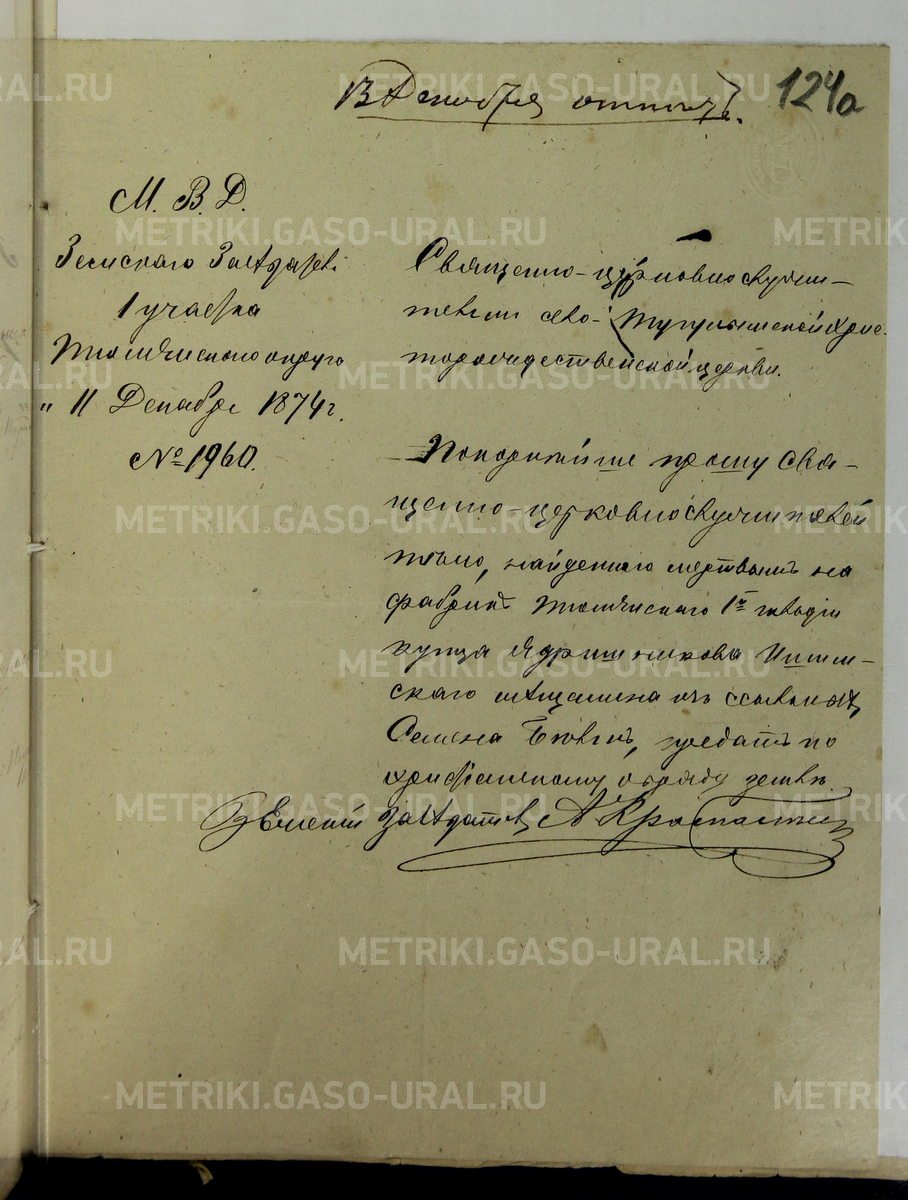 13 Декабря отпѣтъ.
124а
М. В. Д.
Земскаго Засѣдателя
1 участка
Тюменскаго округа
„ 11 Декабря 1874 г.
№ 1960.
Священно-церковнослужи-
телямъ Тугулымской Хрис-
торождественской церкви.
Покорнѣйше прошу Свя-
щенно-церковнослужителей
тѣло, найденнаго мертвымъ на
фабрикѣ Тюменскаго 1й гильдіи
купца Ядрышникова Ишим-
скаго мѣщанина изъ ссыльныхъ
Семена предать по
христіанскому обряду землѣ.
Земскій Засѣдатель А
METRIKI.GASO-URAL.RU